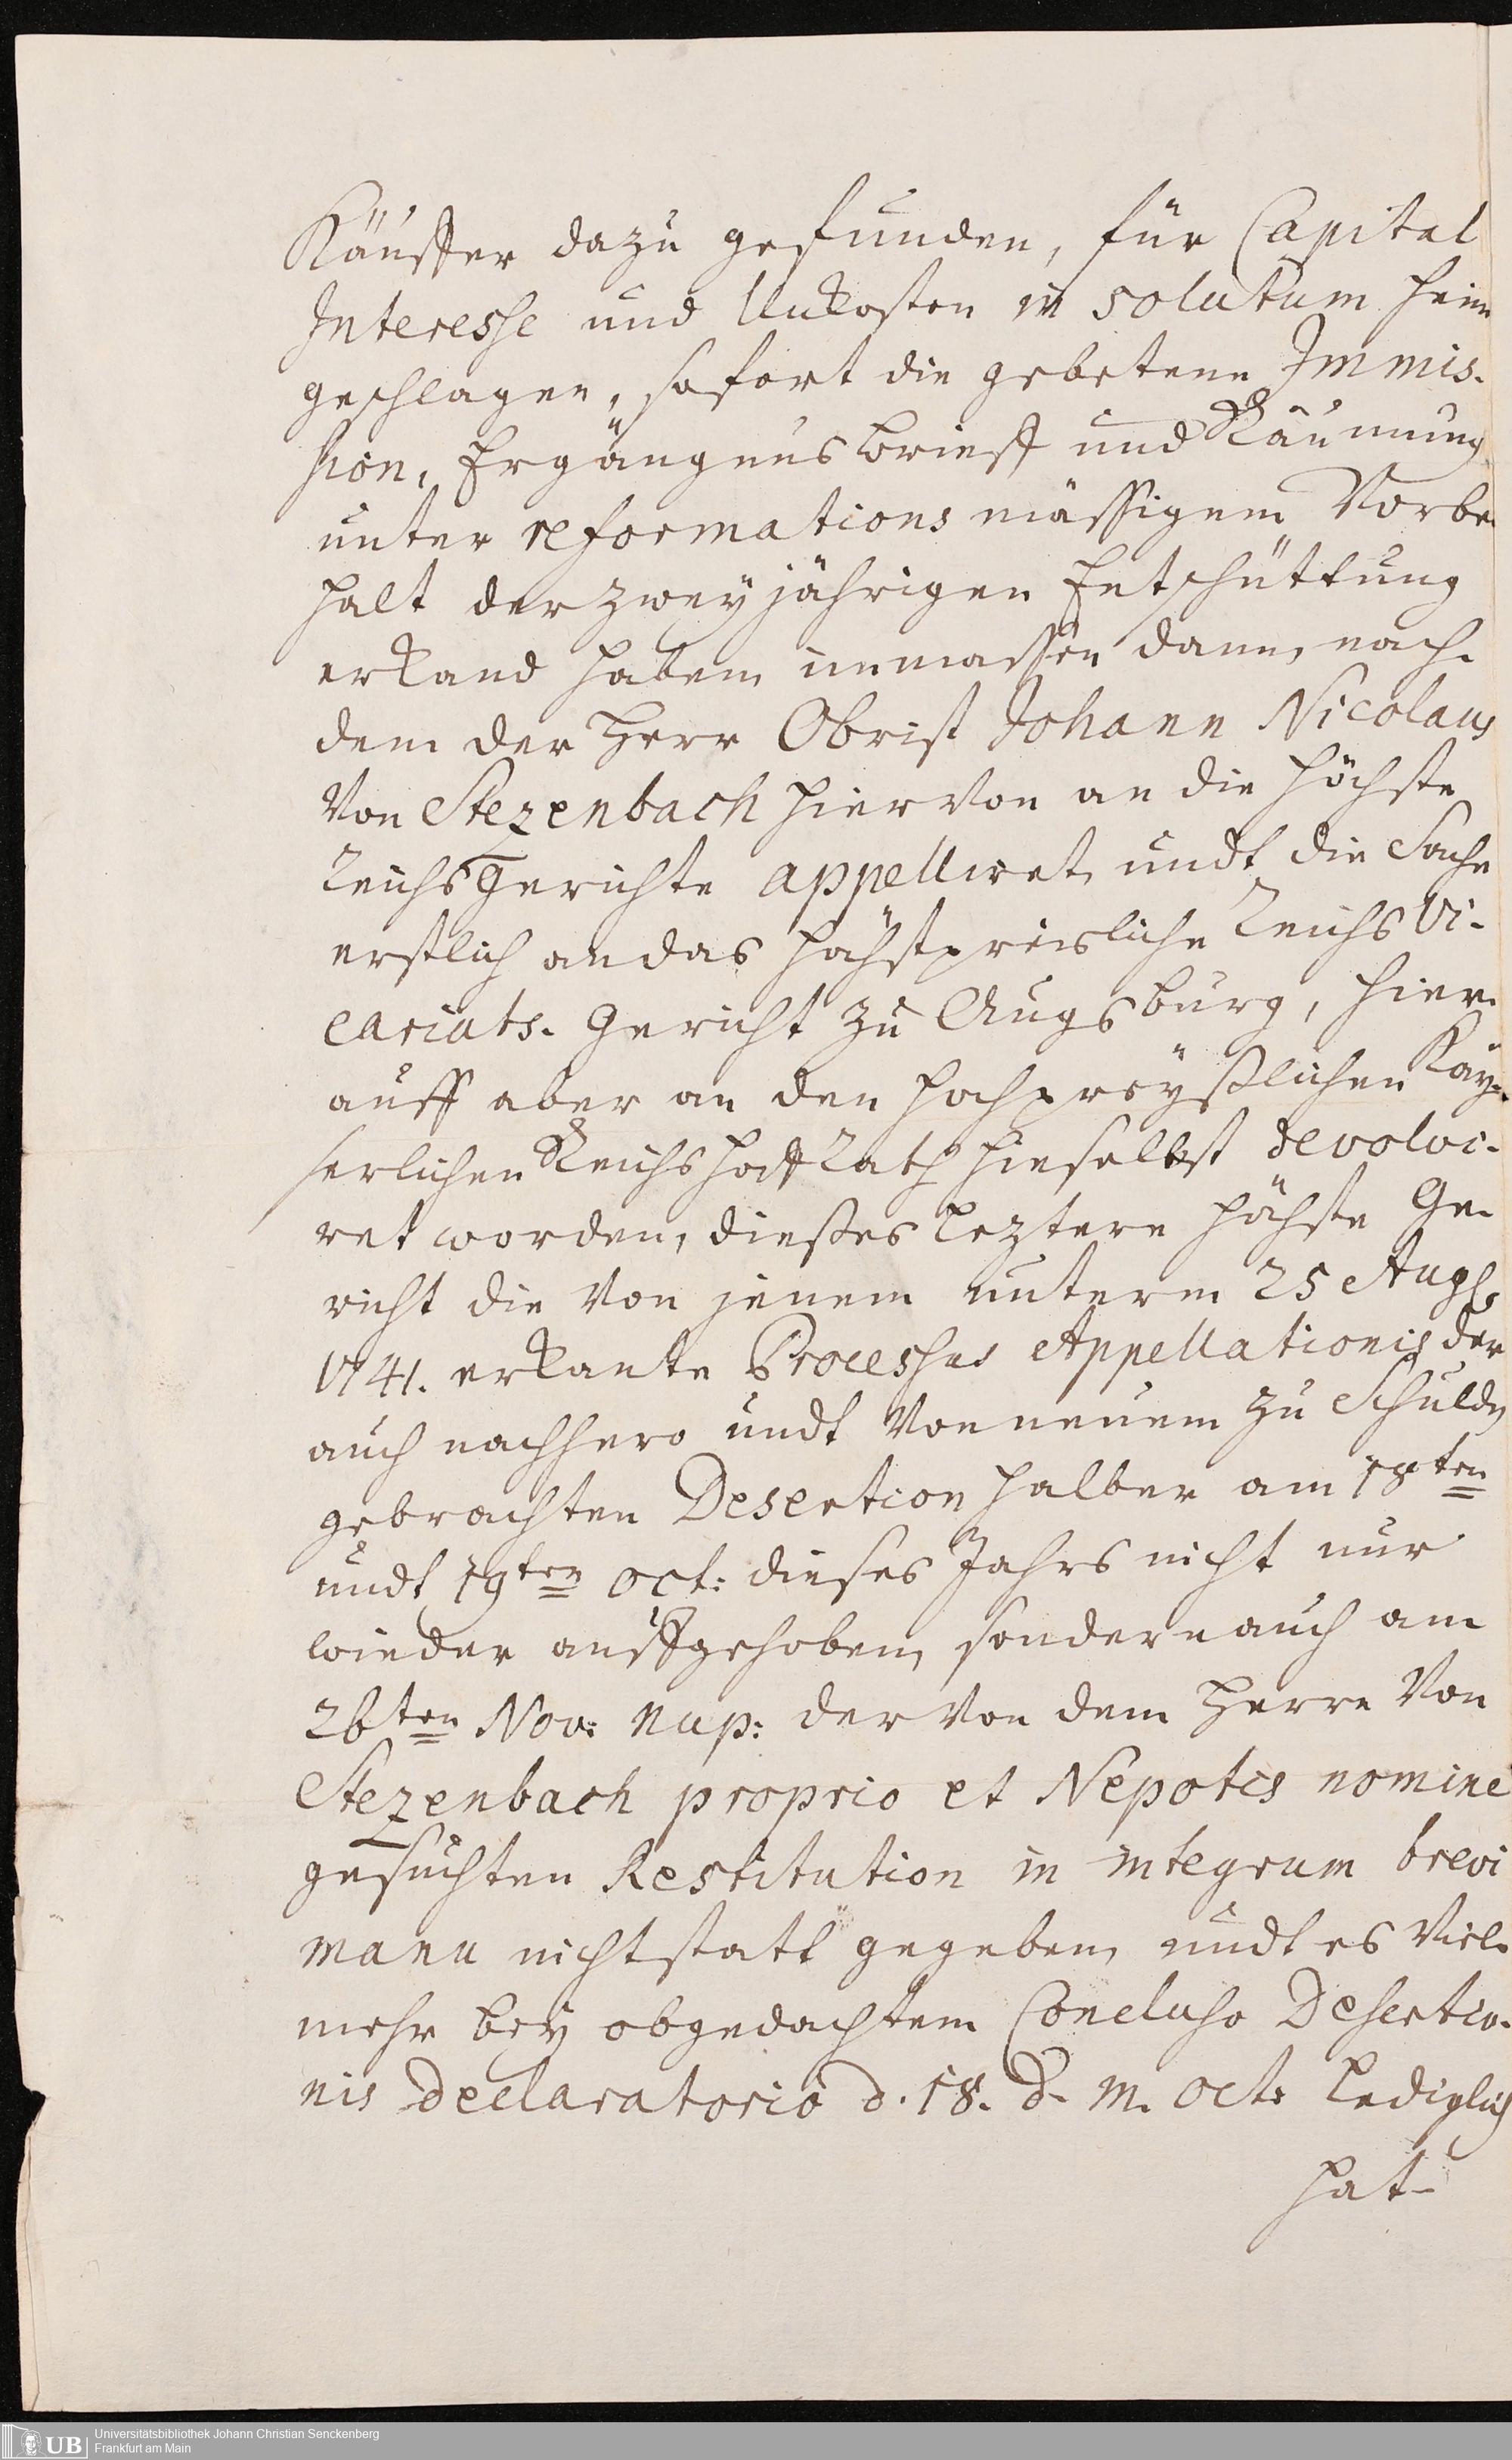 Käuffer dazu gefunden, für Capital
Interesse und Unkosten in solutum heim
geschlagen, sofort die gebetene Immis-
sion, Ergängnusbrieff und Räumung
unter reformations mässigem Vorbe
halt der zweyjährigen Entschüttung
erkand haben, inmassen dann, nach-
dem der Herr Obrist Johann Nicolaus
von Stezenbach hiervon an die höchste
Reichsgerichte appelliret, undt die Sache
erstlich an das höchstpreisliche Reichs Vi-
cariats-Gericht zu Augsburg, hier-
auff aber an den hochpreyßlichen Kay-
serlichen Reichs Hoff Rath hieselbst devolvi-
ret worden, dießes leztere höchste Ge-
richt die von jenem unterm 25 Aug.
1741. erkante Processus Appellationis der
auch nachhero undt von neuem zu Schulden
gebrachten Desertion halber am 18ten
undt 19ten Oct: dieses Jahrs nicht nur
wieder auffgehoben, sondern auch am
26ten Nov: nup: der von dem Herrn von
Stezenbach proprio et Nepotis nomine
gesuchten Restitution in integrum brevi
manu nicht statt gegeben, undt es viel-
mehr bey obgedachtem Concluso Desertio-
nis declaratorio d. 18. d. M. Oct: lediglich
hat-
Universitätsbibliothek Johann Christian Senckenberg
UB
Frankfurt am Main